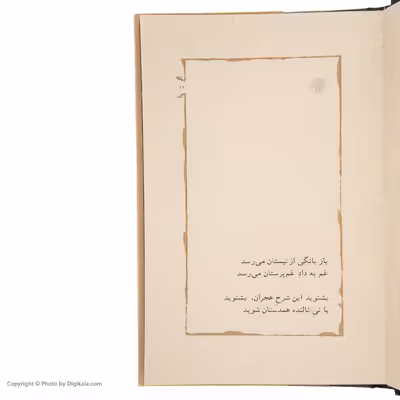 باز بانگی از نیستان می‌رسد
غم به دادِ غم‌پرستان می‌رسد
بشنوید این شرح هجران، بشنوید
با نیِ نالنده همدستان شوید
Copyright © Photo by Digikala.com